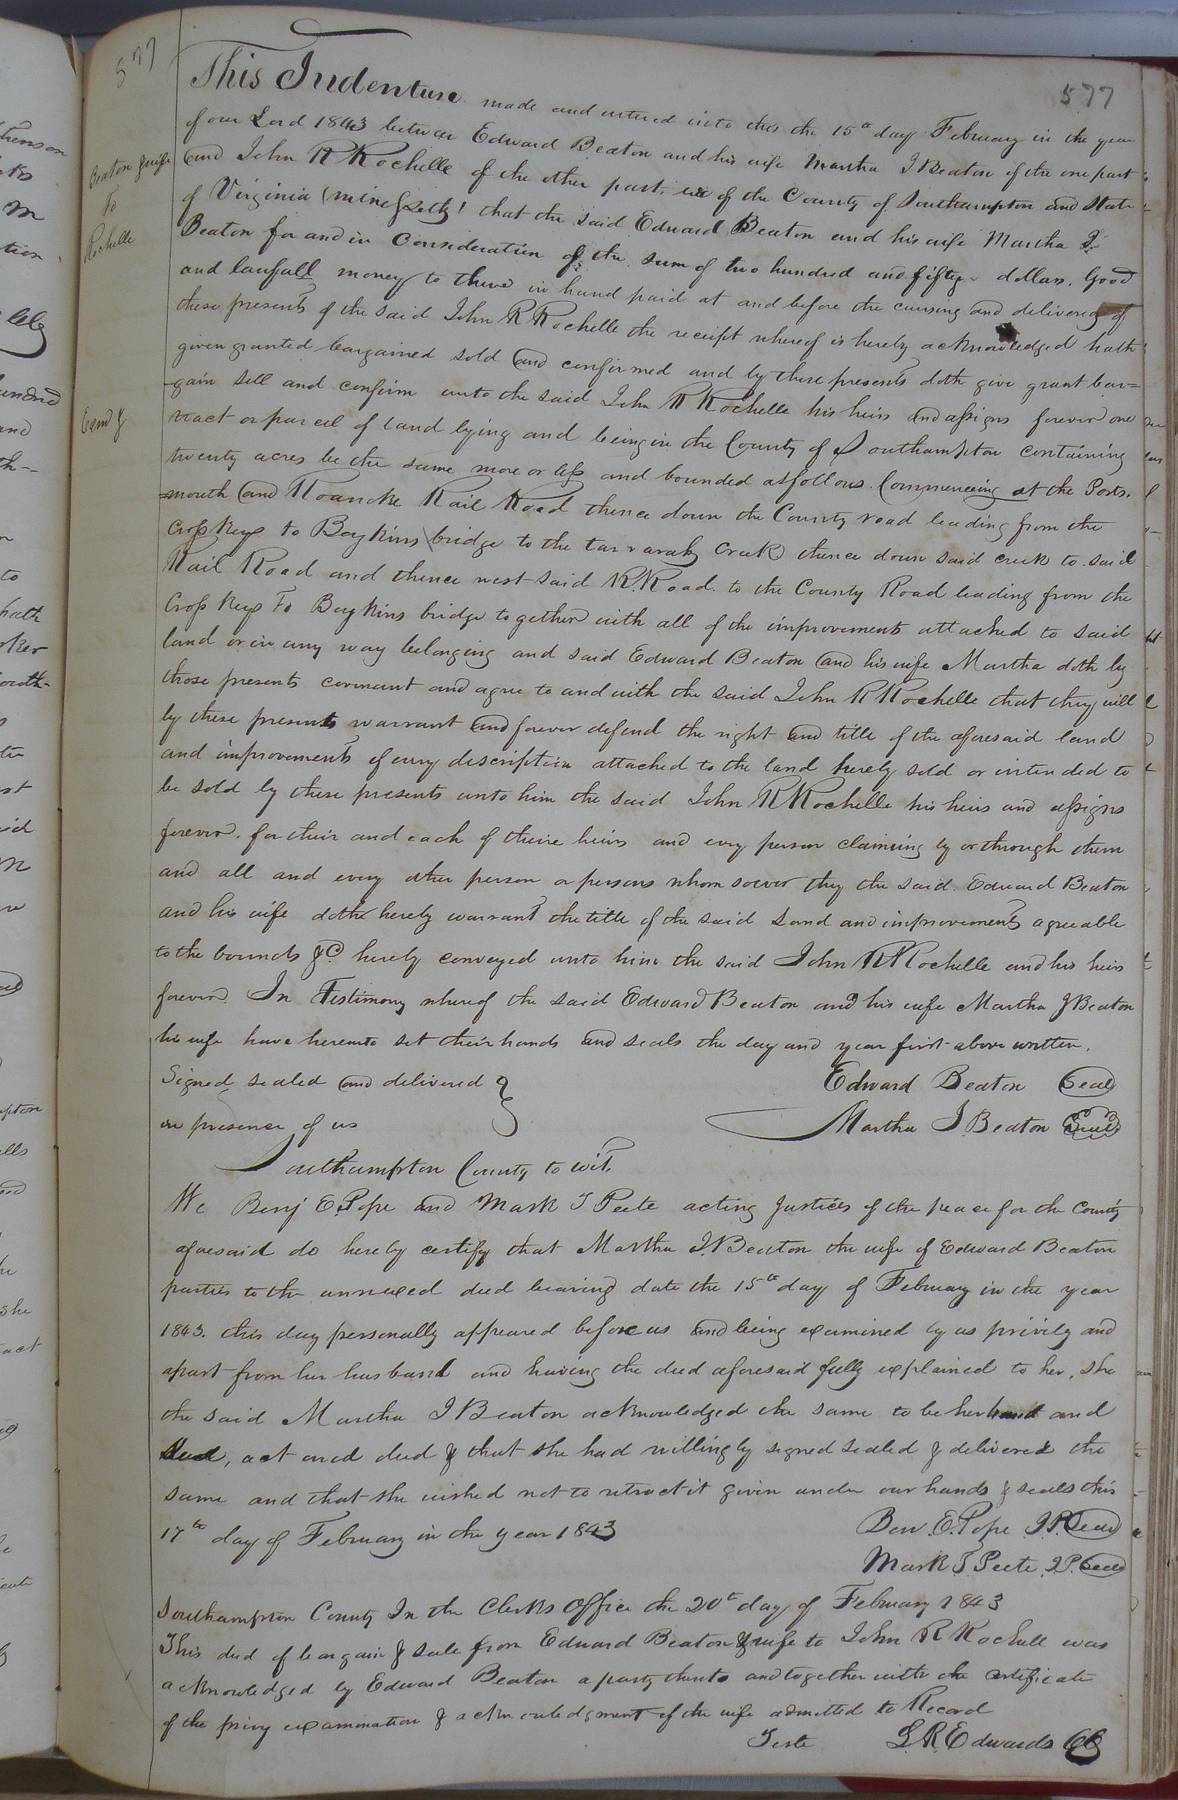 577
577
This Indenture made and entered into this the 15th day February in the year
of our Lord 1843 between Edward Beaton and his wife Martha J Beaton of the one part
Beaton & wife
To
Rochelle
and John R Rochelle of the other part, all of the County of Southampton and State
of Virginia (witnesseth) that the said Edward Beaton and his wife Martha J.
Beaton for and in Consideration of the sum of two hundred and fifty dollars, Good
and laufull money to them in hand paid at and before the ensuing and delivery of
these presents of the said John R Rochelle the receipt whereof is hereby acknowledged hath
given granted bargained sold and confirmed and by these presents doth give grant bar=
Exam d
gain sell and confirm unto the said John R Rochelle his heirs and assigns forever one
tract or parcel of land lying and being in the County of Southampton containing
twenty acres be the same more or less and bounded as follows. Commencing at the Ports.
mouth and Roanoke Rail Road thence down the County road leading from the
Cross Keys to Boykins bridge to the tarrarah Creek thence down said creek to said
Rail Road and thence west said R.Road to the County Road leading from the
Cross Keys To Boykins bridge together with all of the improvements attached to said
land or in any way belonging and said Edward Beaton and his wife Martha doth by
those presents covenant and agree to and with the said John R Rochelle that they will
by these presents warrant and forever defend the right and title of the aforesaid land
and improvements of every description attached to the land hereby sold or intended to
be sold by these presents unto him the said John R Rochelle his heirs and assigns
forever. for their and each of theire heirs and evry person claiming by or through them
and all and every other person or persons whom soever they the said Edward Beaton
and his wife doth hereby warrant the title of the said Land and improvements agreeable
to the bounds &c hereby conveyed unto him the said John R Rochelle and his heirs
forever. In Testimony whereof the said Edward Beaton and his wife Martha J Beaton
his wife have hereunto set their hands and seals the day and year first above written.
Signed sealed and delivered } Edward Beaton Seal
in presence of us Martha J. Beaton Seal
Southampton County to wit,
We Benj E. Pope and Mark T Peete acting Justices of the peace for the County
aforesaid do hereby certify that Martha J. Beaton the wife of Edward Beaton
parties to the annexed deed bearing date the 15th day of February in the year
1843. this day personally appeared before us and being examined by us privily and
apart from her husband and having the deed aforesaid fully explained to her, she
the said Martha J Beaton acknowledged the same to be her hand and
deed, act and deed & that she had willingly signed sealed & delivered the
same and that she wished not to retract it given under our hands & seals this
17th day of February in the year 1843
Ben. E. Pope J.P. Seal
Mark T. Peete J.P. Seal
Southampton County In the Clerks Office the 20t day of February 1843
This deed of bargain & sale from Edward Beaton & wife to John R Rochell was
acknowledged by Edward Beaton a party thereto and together with the certificate
of the privy examination & acknowledgment of the wife admitted to Record
Teste L. R. Edwards CC